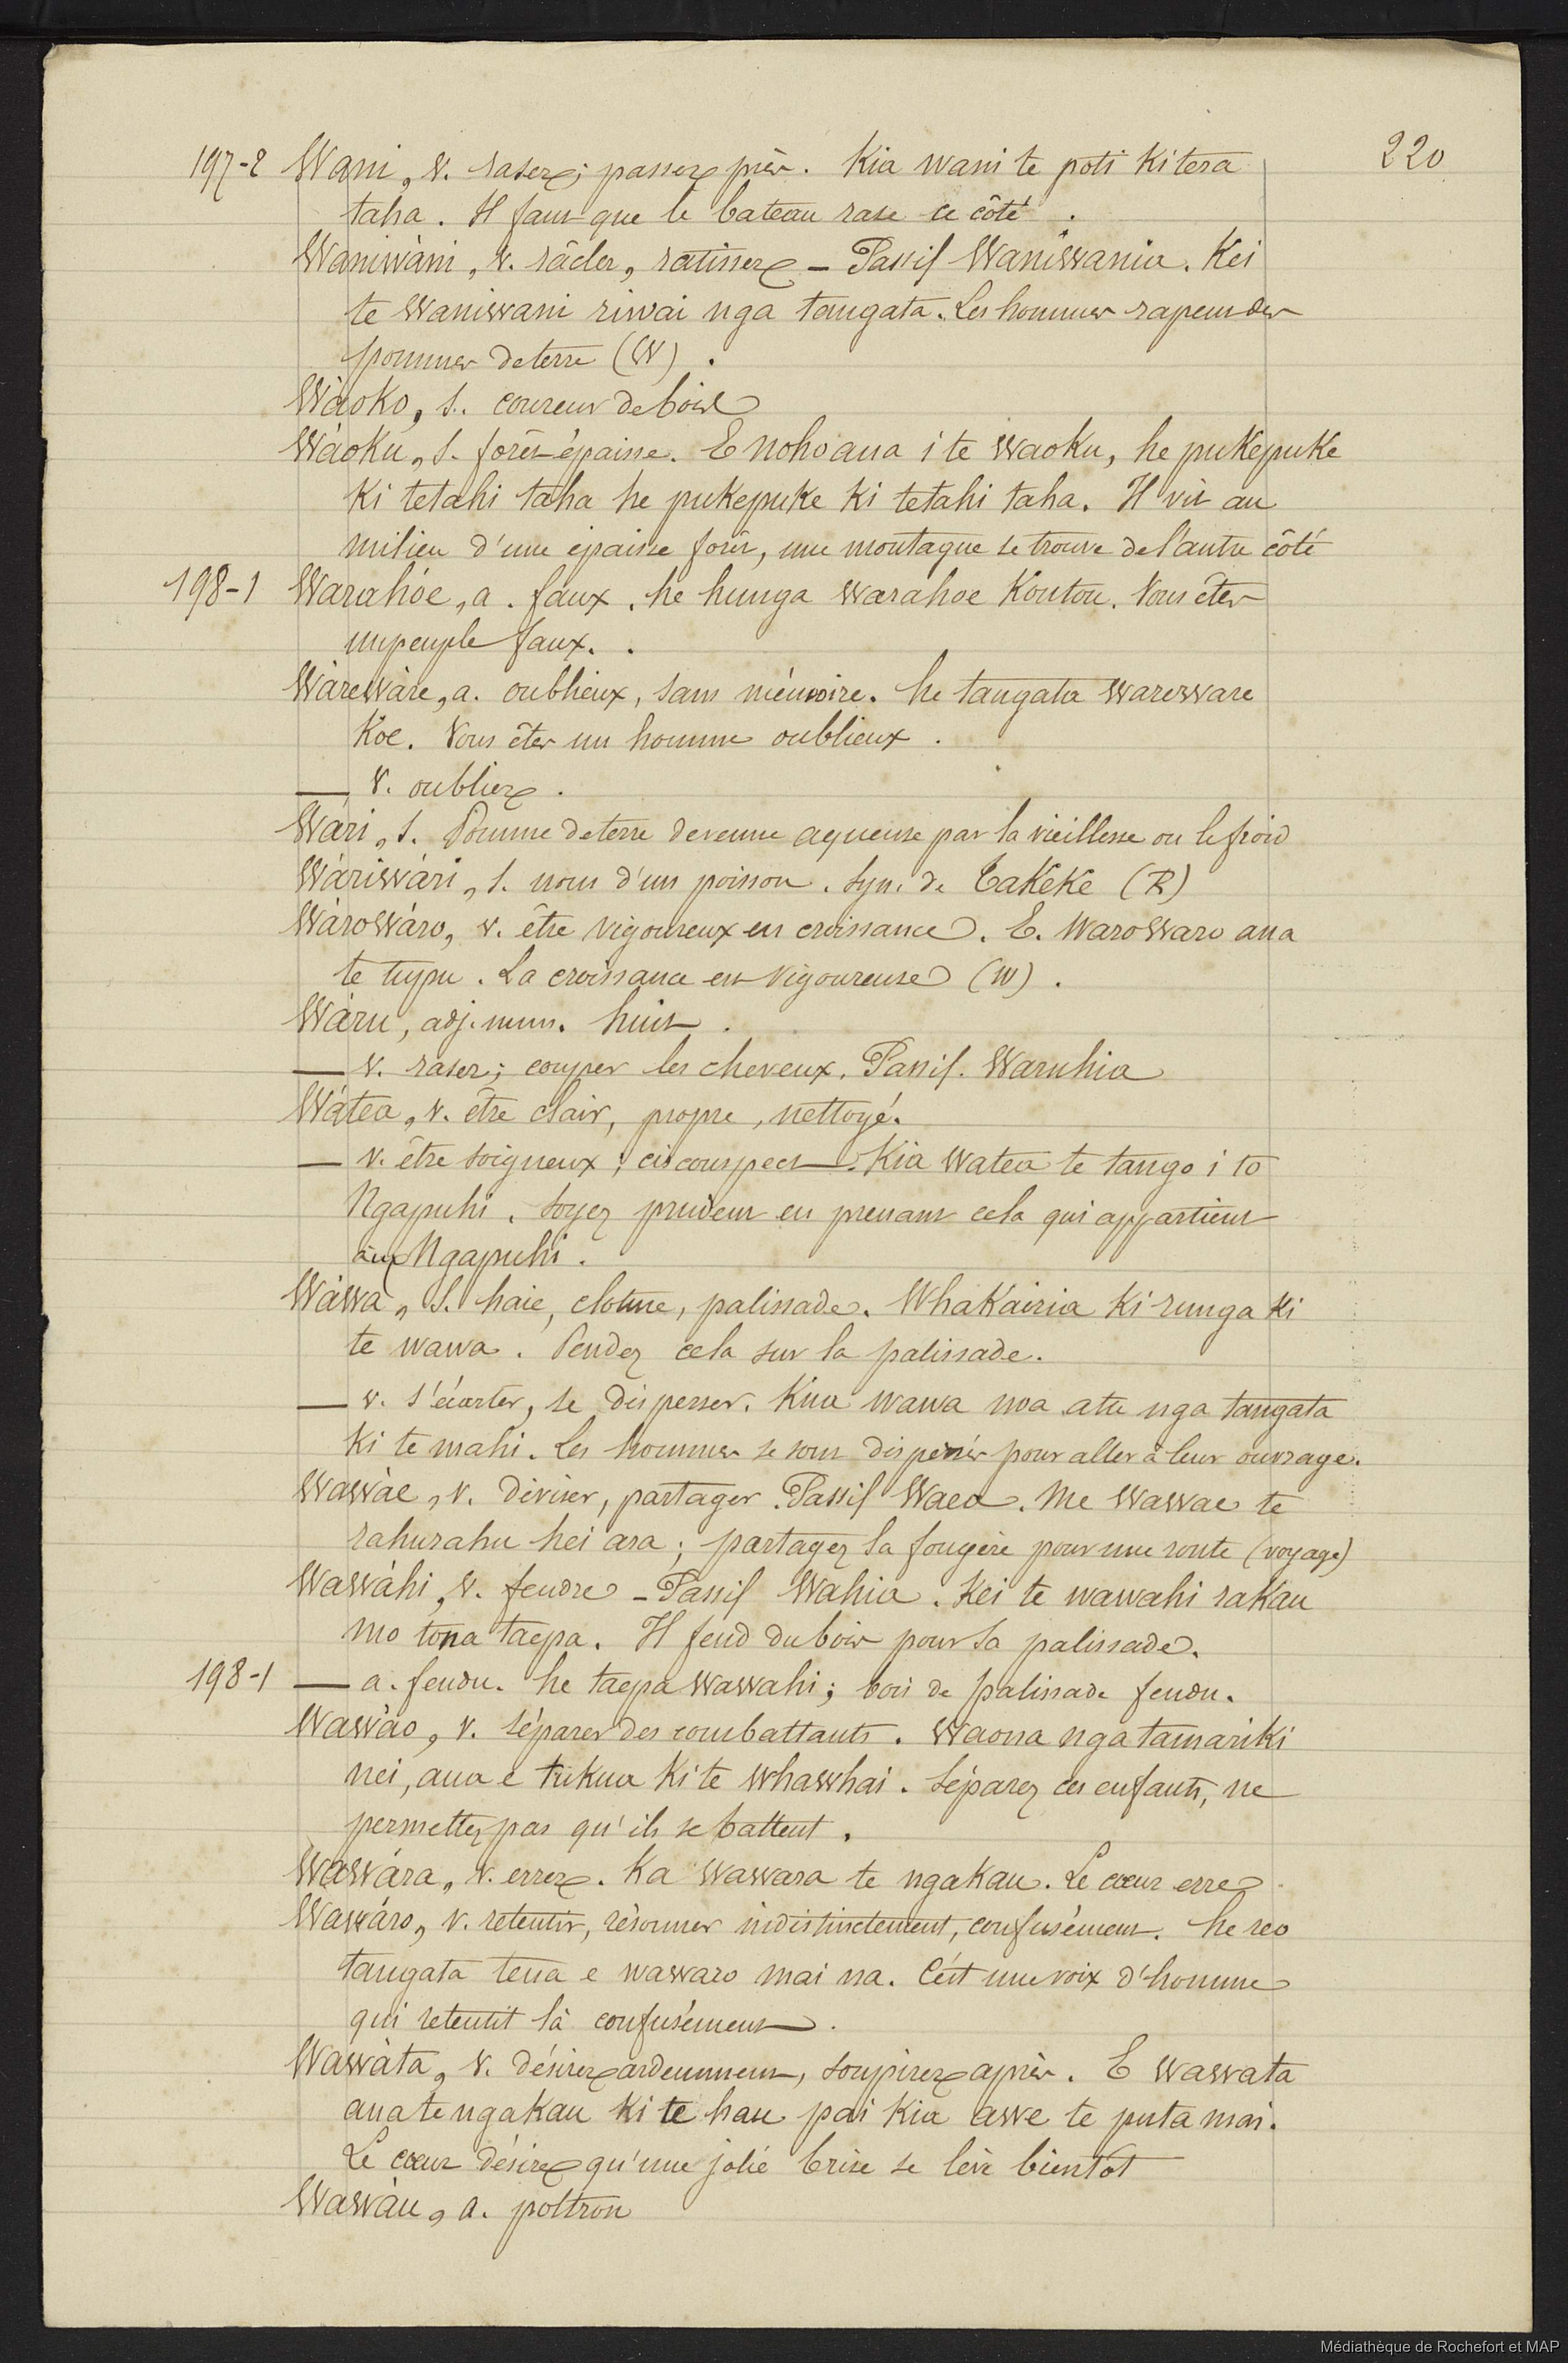 220
197-2 Wani, v. raser; passer près. Kia wani te poti ki tera
taha. Il faut que le bateau rase ce côté.
Waniwàni, v. râcler, ratisser – Passif Waniwania. Kei
te waniwani riwai nga tangata. Les hommes rapent des
pommes de terre (W).
Wàoko, s. coureur de bois
Wàoku, s. forêt épaisse. E noho ana i te waoku, he pukepuke
ki tetahi taha he pukepuke ki tetahi taha. Il vit au
milieu d'une épaisse forêt, une montagne se trouve de l'autre côté
198-1 Warahóe, a. faux. he hunga warahoe Koutou. Vous êtes
un peuple faux.
Wàrewàre, a. oublieux, sans mémoire. he tangata wareware
Koe. Vous êtes un homme oublieux.
— v. oublier.
Wári, s. Pomme de terre devenue aqueuse par la vieillesse ou le froid
Wàriwári, s. nom d'un poisson. Syn. de Takeke (R)
Wàrowáro, v. être vigoureux en croissance. E. warowaro ana
te tupu. La croissance est vigoureuse (W).
Wàru, adj. num. huit.
— v. raser; couper les cheveux. Passif. Waruhia
Wátea, v. être clair, propre, nettoyé.
— v. être soigneux; circonspect. Kia watea te tango i to
Ngapuhi. Soyez prudent en prenant cela qui appartient
aux Ngapuhi.
Wàwa, s. haie, cloture, palissade. Whakairia ki runga ki
te wawa. Pendez cela sur la palissade.
— v. s'écarter, se disperser. Kua wawa noa atu nga tangata
ki te mahi. Les hommes se sont dispersés pour aller à leur ouvrage.
Wawàe, v. diviser, partager. Passif Waea. Me wawae te
rahurahu hei ara; partagez la fougère pour une route (voyage)
Wawàhi, v. fendre – Passif Wahia. Kei te wawahi rakau
mo tona taepa. Il fend du bois pour sa palissade.
198-1 — a. fendu. he taepa wawahi; bois de palissade fendu.
Wawào, v. séparer des combattants. Waona nga tamariki
nei, aua e tukua ki te whawhai. Séparez ces enfants, ne
permettez pas qu'ils se battent.
Wawára, v. errer. Ka wawara te ngakau. Le cœur erre
Wawáro, v. retentir, résonner indistinctement, confusément. he reo
tangata tena e wawaro mai na. C'est une voix d'homme
qui retentit là confusément.
Wawàta, v. désirer ardemment, soupirer après. E wawata
ana te ngakau ki te hau pai kia awe te puta mai.
Le cœur désire qu'une jolie brise se lève bientôt
Wawàu, a. poltron
Médiathèque de Rochefort et MAP